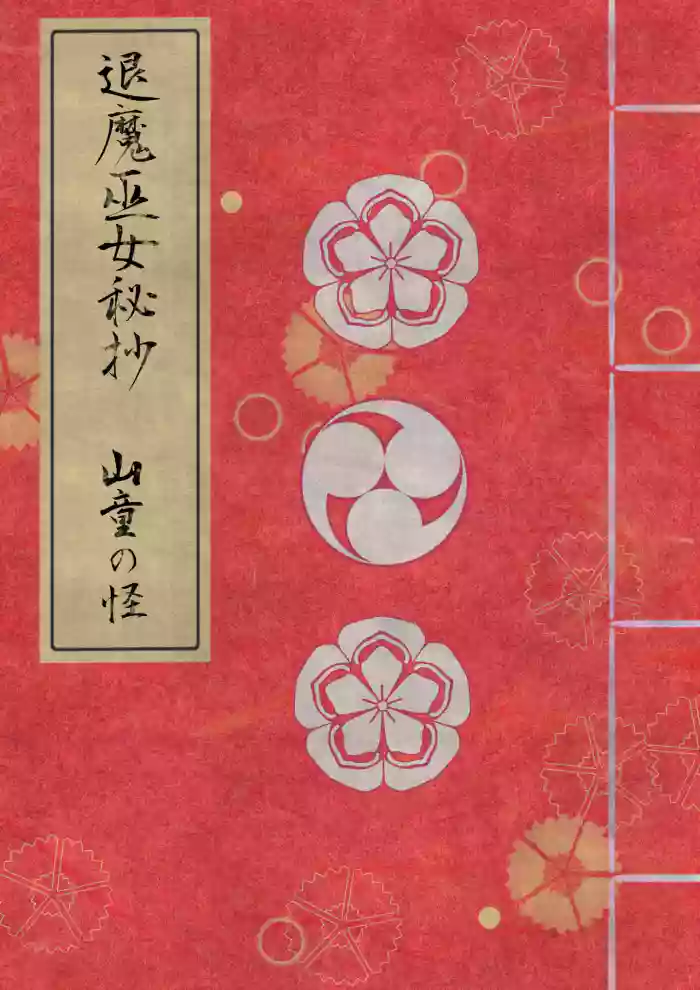 退魔巫女秘抄 山童の怪